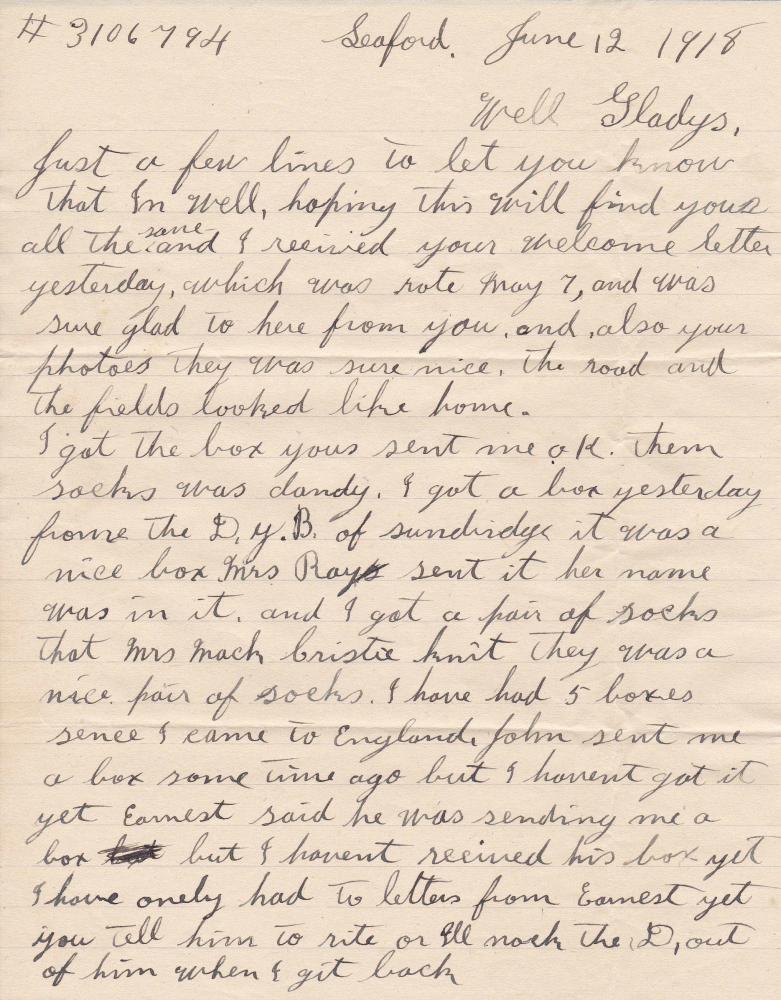 # 3106794 Seaford. June 12 1918
Well Gladys,
Just a few lines to let you know
that Im well, hoping this will find yous
all the same and I reeived your welcome letter
yesterday, which was rote May 7, and was
sure glad to here from you, and, also your
photoes they was sure nice, the road and
the fields looked like home.
I got the box yous sent me o.K. them
socks was dandy. I got a box yesterday
frome the D.Y.B. of sundirdge it was a
nice box Mrs Ray sent it her name
was in it, and I got a pair of socks
that Mrs Mack Cristie knit they was a
nice pair of socks. I have had 5 boxes
sence I came to England, John sent me
a box some time ago but I havent got it
yet Earnest said he was sending me a
box but I havent reeived his box yet
I have onely had to letters from Earnest yet
you tell him to rite or Ill nock the D, out
of him when I git back